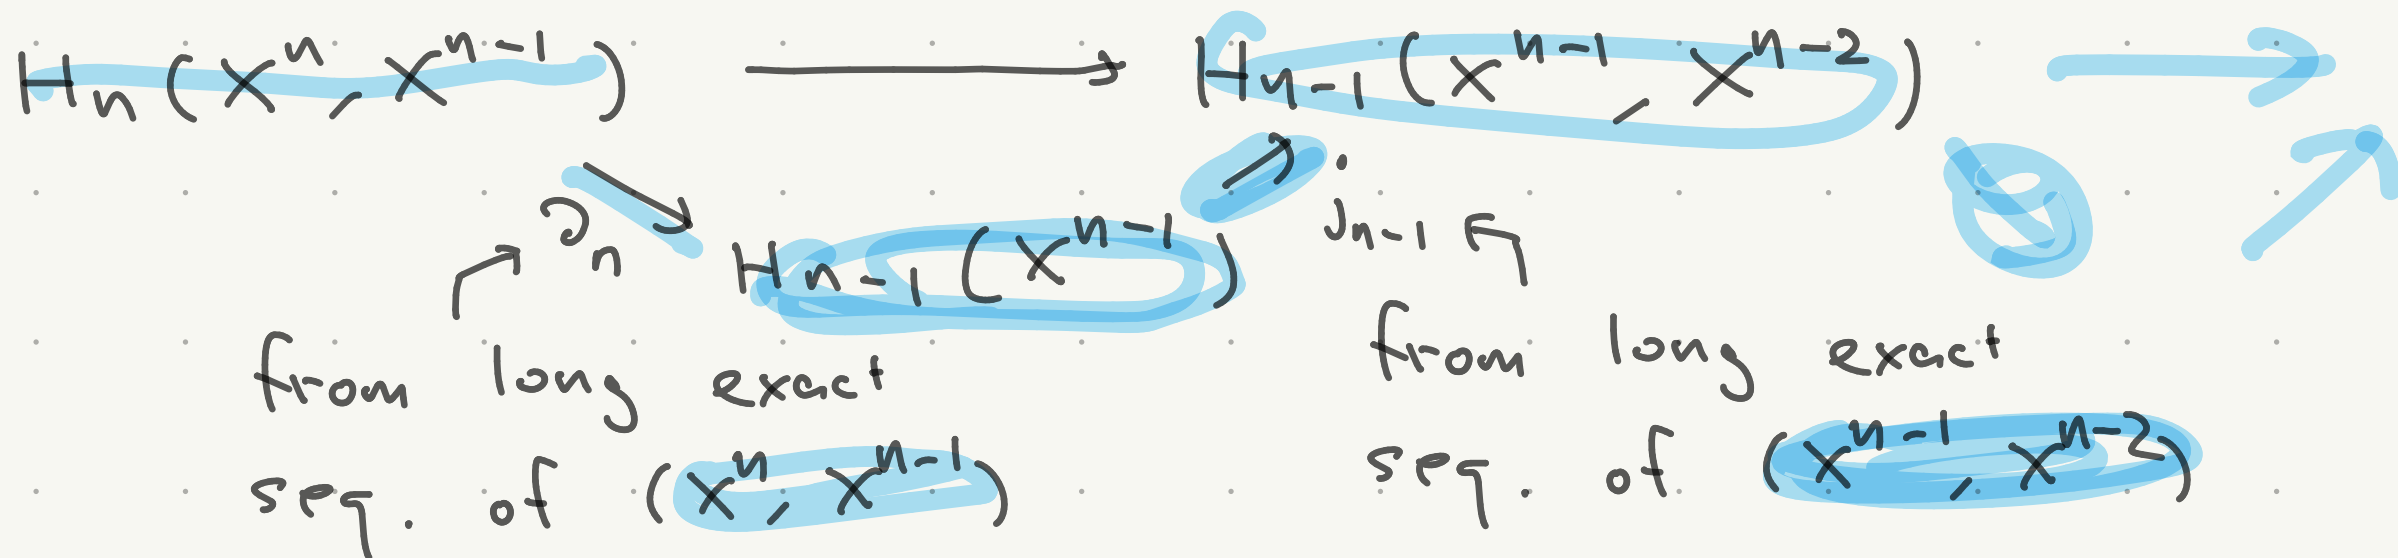 Hₙ(Xⁿ, Xⁿ⁻¹) ⟶ Hₙ₋₁(Xⁿ⁻¹, Xⁿ⁻²)
∂ₙ ↘ Hₙ₋₁(Xⁿ⁻¹) ↗ jₙ₋₁
from long exact
seq. of (Xⁿ, Xⁿ⁻¹)
from long exact
seq. of (Xⁿ⁻¹, Xⁿ⁻²)